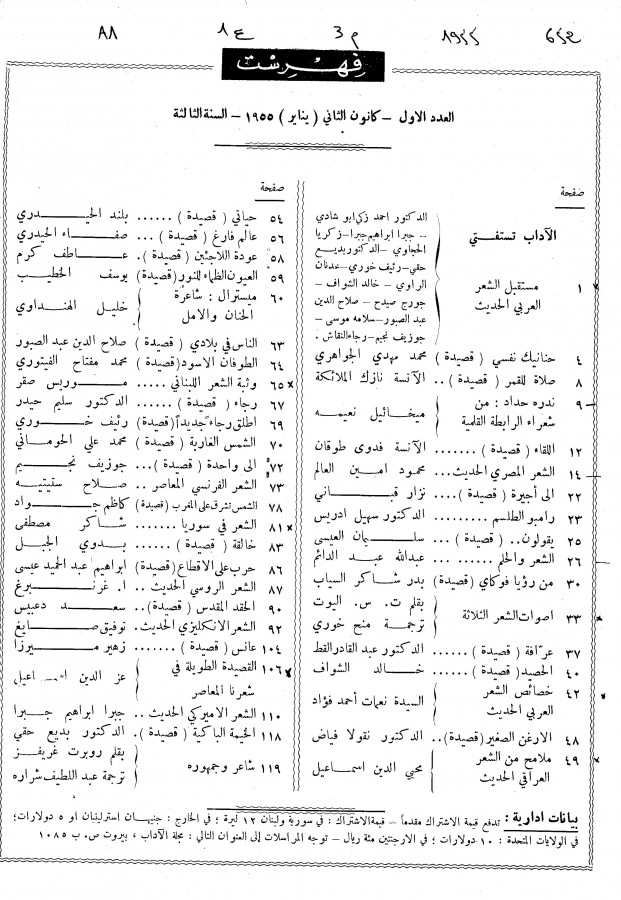 ٦٤٥ ١٩٥٥ م٣ ع١ ٨٨
فهرست
العدد الاول – كانون الثاني ( يناير ) ١٩٥٥ – السنة الثالثة
صفحة
الآداب تستفتي
الدكتور احمد زكي ابو شادي
– جبرا ابراهيم جبرا – زكريا
الحجاوي – الدكتور بديع
حقي – رئيف خوري – عدنان
١ مستقبل الشعر الراوي – خالد الشواف –
العربي الحديث جورج صيدح – صلاح الدين
عبد الصبور – سلامه موسى –
جوزيف نجيم – رجاء النقاش .
٤ حنانيك نفسي ( قصيدة ) محمد مهدي الجواهري
٨ صلاة للقمر ( قصيدة ) .. الآنسة نازك الملائكة
٩ ندره حداد : من
شعراء الرابطة القلمية ميخائيل نعيمه
١٢ اللقاء ( قصيدة ) ....... الآنسة فدوى طوقان
١٤ الشعر المصري الحديث ... محمود امين العالم
٢٢ الى أجيرة ( قصيدة ) .... نزار قباني
٢٣ رامبو الطلسم ......... الدكتور سهيل ادريس
٢٥ يقولون .. ( قصيدة ) ... سليمان العيسى
٢٦ الشعر والحلم ...... عبدالله عبد الدائم
٣٠ من رؤيا فوكاي ( قصيدة ) بدر شاكر السياب
٣٣ اصوات الشعر الثلاثة بقلم ت . س . اليوت
ترجمة منح خوري
٣٧ عرّافة ( قصيدة ) ...... الدكتور عبد القادر القط
٤٠ الحصيد ( قصيدة ) ..... خالد الشواف
٤٢ خصائص الشعر
العربي الحديث السيدة نعمات أحمد فؤاد
٤٨ الارغن الصغير ( قصيدة ) .. الدكتور نقولا فياض
٤٩ ملامح من الشعر
العراقي الحديث محيي الدين اسماعيل
صفحة
٥٤ حياتي ( قصيدة ) ...... بلند الحيدري
٥٦ عالم فارغ ( قصيدة ) ... صفاء الحيدري
٥٨ عودة اللاجئين ( قصيدة ) . عاطف كرم
٥٩ العيون الظماء للنور ( قصيدة ) يوسف الخطيب
٦٠ ميسترال : شاعرة
الحنان والامل خليل الهنداوي
٦٣ الناس في بلادي ( قصيدة ) صلاح الدين عبد الصبور
٦٤ الطوفان الاسود ( قصيدة ) محمد مفتاح الفيتوري
٦٥ وثبة الشعر اللبناني ..... موريس صقر
٦٧ رجاء ( قصيدة ) ..... الدكتور سليم حيدر
٦٩ اطلق رجاءً جديداً ( قصيدة ) رئيف خوري
٧٠ الشمس الغاربة ( قصيدة ) محمد علي الحوماني
٧٢ الى واحدة ( قصيدة ) ... جوزيف نجيم
٧٣ الشعر الفرنسي المعاصر .. صلاح ستيتيه
٧٨ الشمس تشرق على المغرب ( قصيدة ) كاظم جواد
٨١ الشعر في سوريا ...... شاكر مصطفى
٨٣ خالقة ( قصيدة ) ..... بدوي الجبل
٨٦ حرب على الاقطاع ( قصيدة ) ابراهيم عبد الحميد عيسى
٨٧ الشعر الروسي الحديث .. ا . غرنبرغ
٩٠ الحقد المقدس ( قصيدة ) .. سعد دعبيس
٩٢ الشعر الانكليزي الحديث . توفيق صايغ
١٠٤ عانس ( قصيدة ) ..... زهير ميرزا
١٠٦ القصيدة الطويلة في
شعرنا المعاصر عز الدين اسماعيل
١١٠ الشعر الاميركي الحديث .. جبرا ابراهيم جبرا
١١٨ الخيمة الباكية ( قصيدة ) . الدكتور بديع حقي
١١٩ شاعر وجمهوره بقلم روبرت غريفز
ترجمة عبد اللطيف شراره
بيانات ادارية : تدفع قيمة الاشتراك مقدماً – قيمة الاشتراك : في سورية ولبنان ١٢ ليرة ؛ في الخارج : جنيهان استرلينيان او ٥ دولارات ؛
في الولايات المتحدة : ١٠ دولارات ؛ في الارجنتين مئة ريال – توجه المراسلات إلى العنوان التالي : مجلة الآداب ، بيروت ص . ب ١٠٨٥